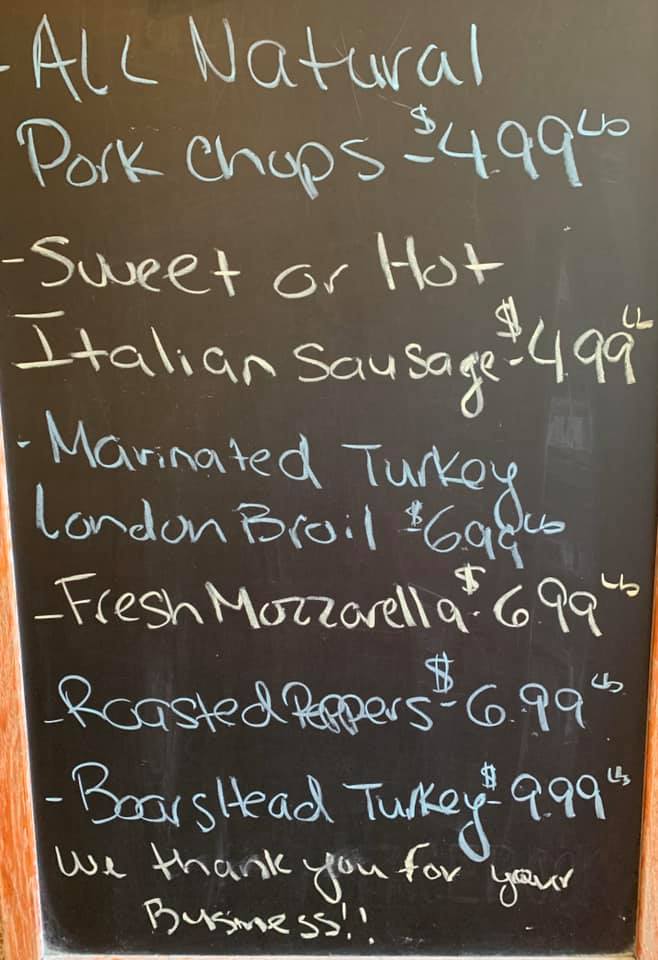 - All Natural
Pork Chops - $4.99 Lb
- Sweet or Hot
Italian Sausage - $4.99 Lb
- Marinated Turkey
London Broil $6.99 Lb
- Fresh Mozzarella - $6.99 Lb
- Roasted Peppers - $6.99 Lb
- Boars Head Turkey - $9.99 Lb
We thank you for your
Business!!